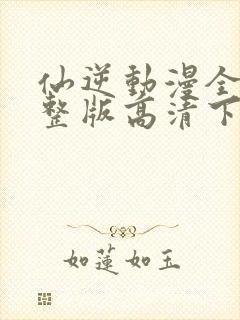 仙逆動漫全
整版高清下
如蓮如玉